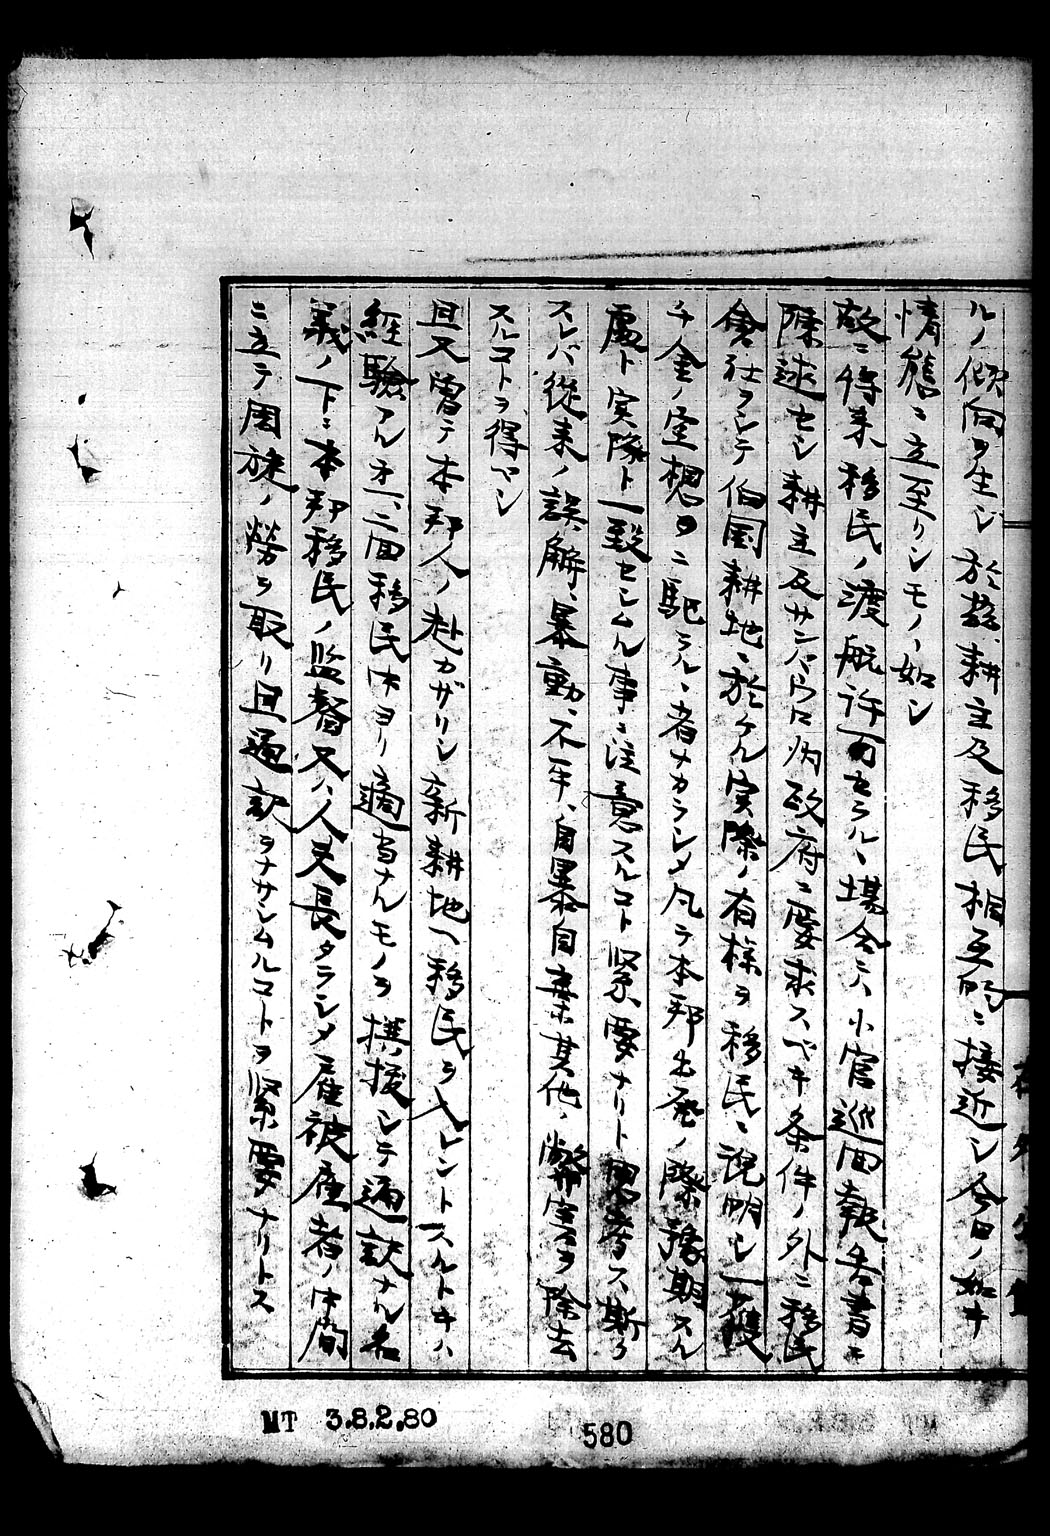 ルノ傾向ヲ生シ於茲耕主及移民相互的ニ接近シ今日ノ如キ
情態ニ立至リシモノヽ如シ
故ニ将来移民ノ渡航許可セラルヽ場合ニハ小官巡回報告書ニ
陳述セシ耕主及サンパウロ州政府ニ要求スベキ条件ノ外ニ移民
会社ヲシテ伯国耕地ニ於ケル実際ノ有様ヲ移民ニ説明シ一獲
千金ノ空想ヲニ駆ラルヽ者ナカラシメ凡テ本邦出発ノ際豫期スル
處ト実際ト一致セシムル事ニ注意スルコト緊要ナリト思考ス斯ク
スレバ従来ノ誤解、暴動、不平、自暴自棄其他ノ弊害ヲ除去
スルコトヲ得ベシ
且又曽テ本邦人ノ赴カザリシ新耕地ヘ移民ヲ入レントスルトキハ
経験アル第一、二回移民中ヨリ適当ナルモノヲ撰抜シテ通訳ナル名
義ノ下ニ本邦移民ノ監督又ハ人夫長タラシメ雇被雇者ノ中間
ニ立テ周旋ノ労ヲ取リ且通訳ヲナサシムルコトヲ緊要ナリトス
MT 3.8.2.80
580